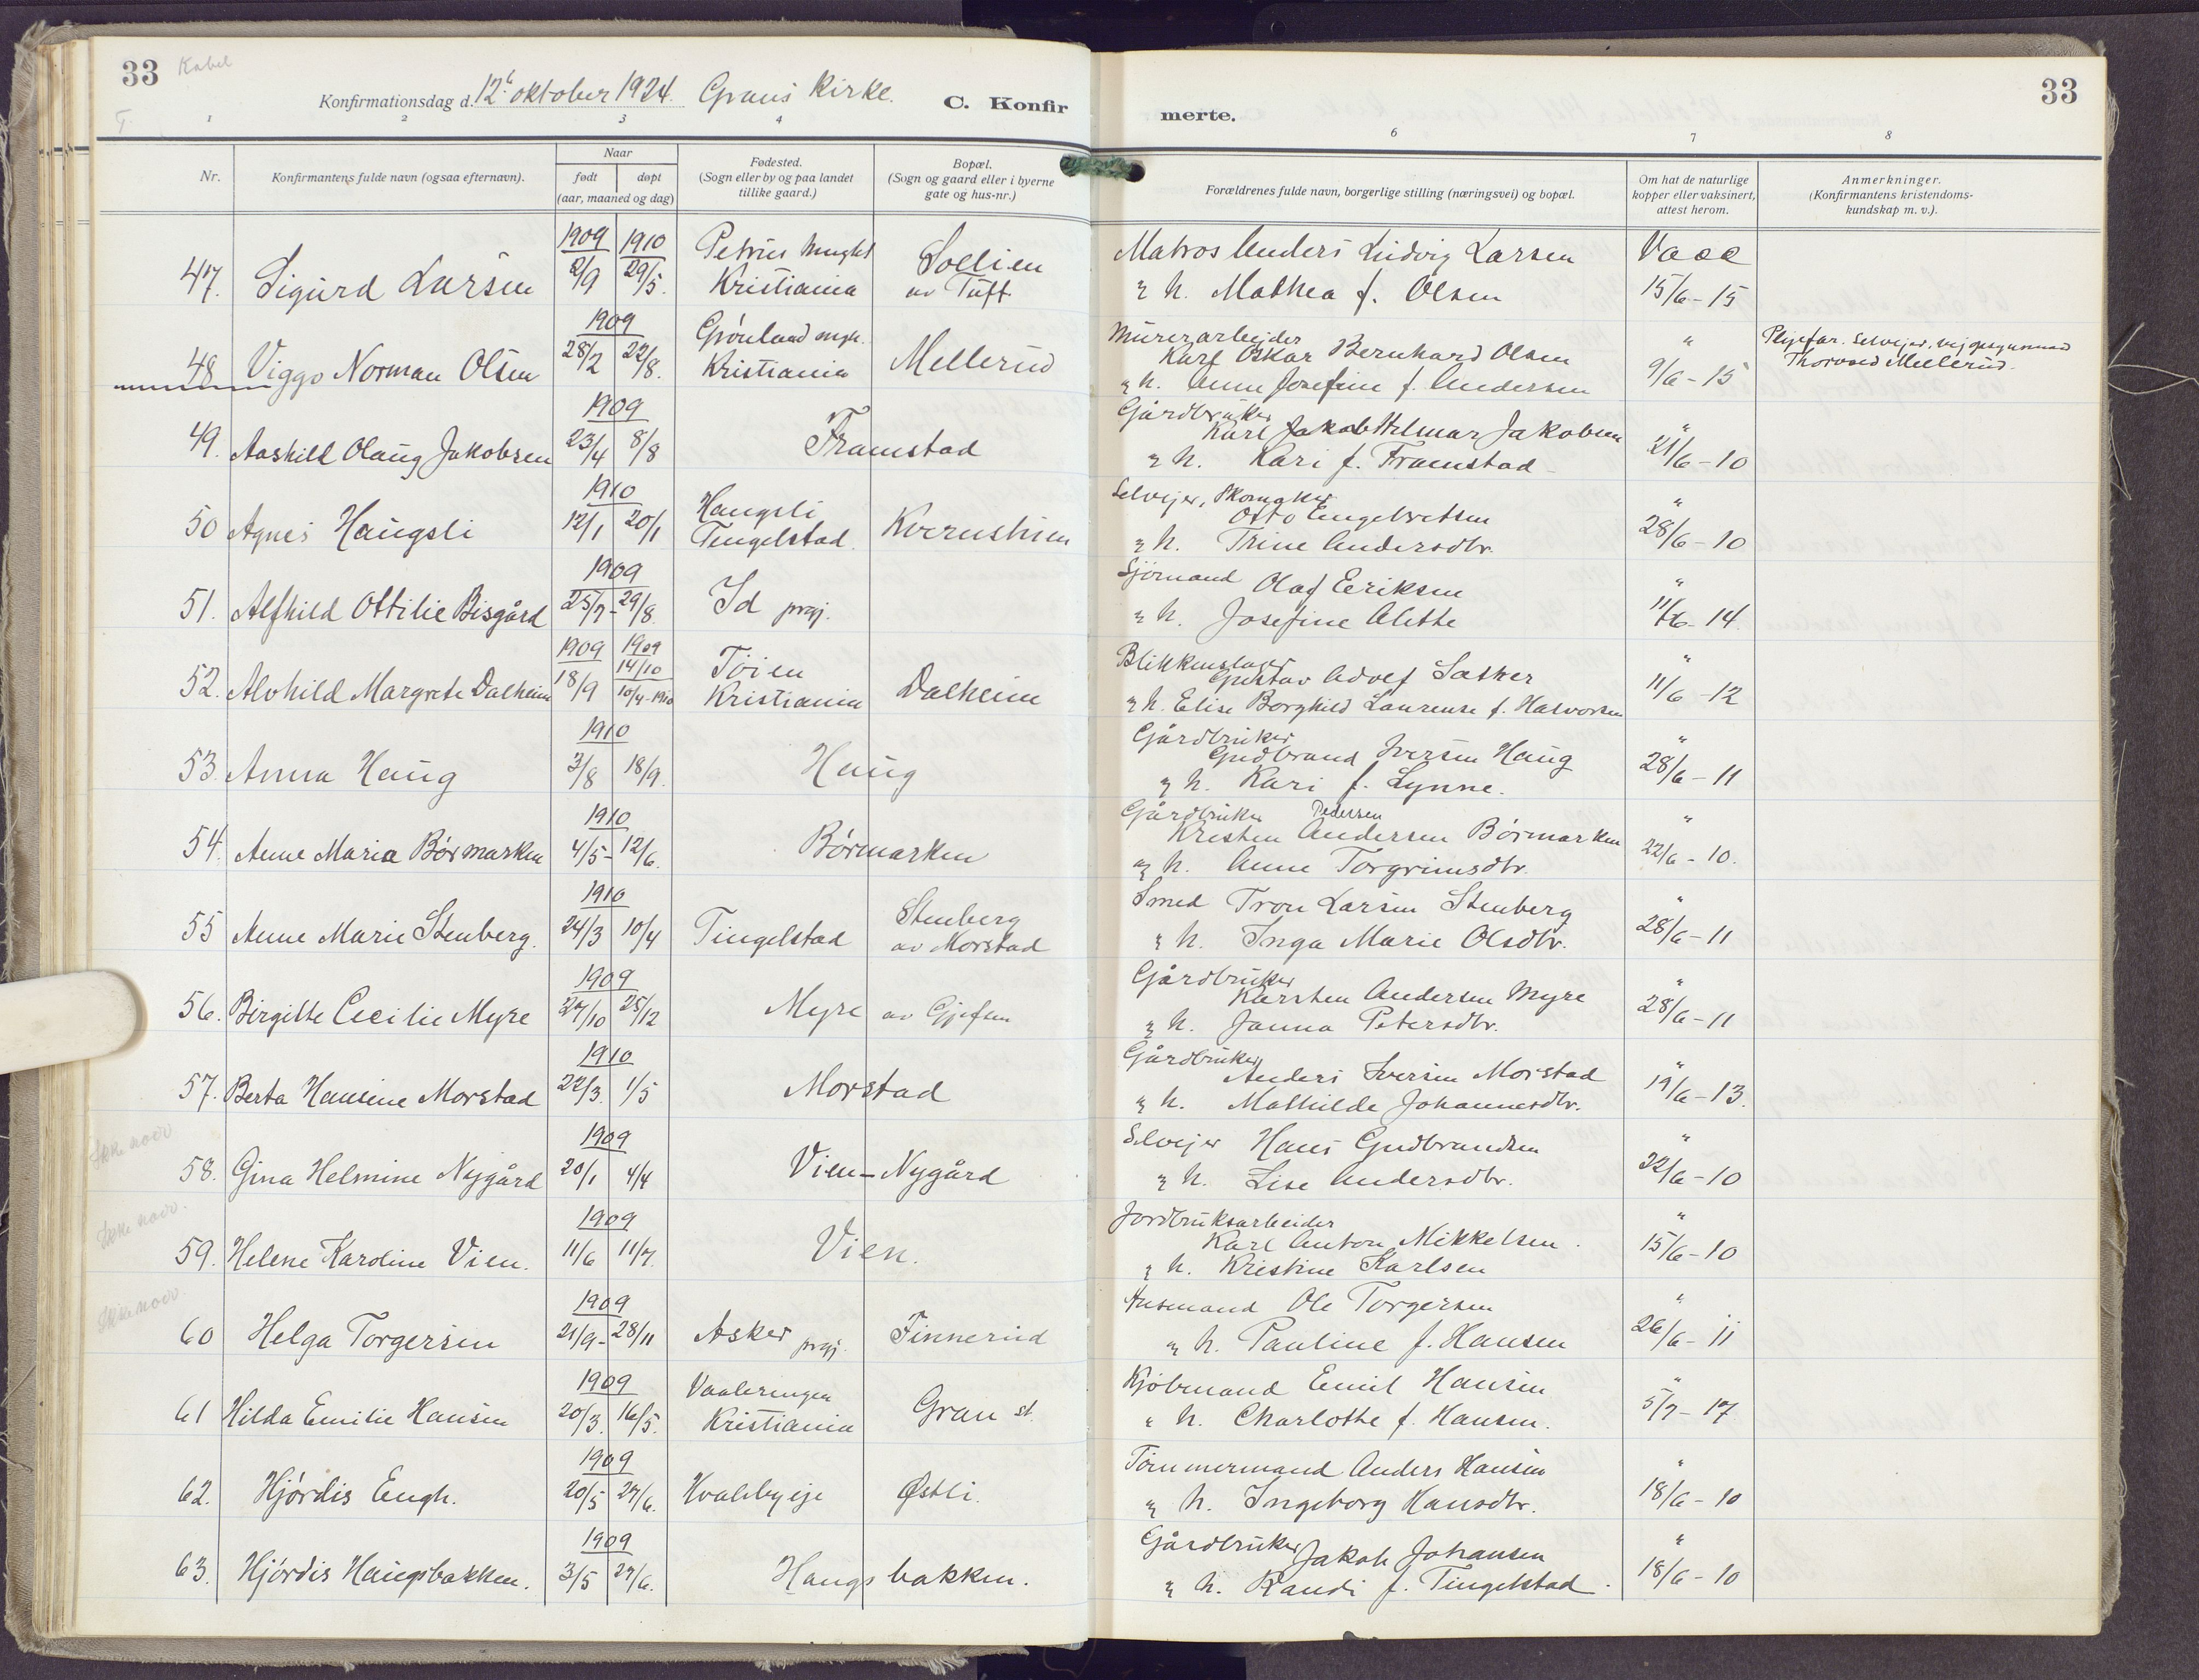 33 Kabel
Konfirmationsdag d. 12te oktober 1924. Grans Kirke.
C. Konfir
merte.
33
1 2 3 4 6 7 8
Nr.
Konfirmantens fulde navn (ogsaa efternavn).
Naar
født døpt
(aar, maaned og dag)
Fødested.
(Sogn eller by og paa landet
tillike gaard.)
Bopæl.
(Sogn og gaard eller i byerne
gate og hus-nr.)
Forældrenes fulde navn, borgerlige stilling (næringsvei) og bopæl.
Om hat de naturlige
kopper eller vaksinert,
attest herom.
Anmerkninger.
(Konfirmantens kristendoms-
kundskap m. v.).
1909 1910 Petrus mught Matros Anders Ludvig Larsen Vacc
47. Sigurd Larsen 2/9 29/5. Kristiania Sollien av Tuft & h. Mathea f. Olsen 15/6-15
1909 Grønland mgh. Murerarbejder
48 Viggo Norman Olsen 28/2 22/8. Kristiania Mellerud Karl Oskar Bernhard Olsen " 9/6-15 Plejefar. Selvejer,
& h. Anna Josefine f. Andersen Thorvald Mellerud.
1909 Gårdbruker
49. Aashild Olaug Jakobsen 23/4 8/8 Framstad Karl Jakob Hilmar Jakobsen " 21/6-10
& h. Kari f. Framstad
1910 Haugsli Selvejer, Skomaker
50 Agnes Haugsli 12/1 20/1 Tengelstad. Otto Engebretsen " 28/6-10
& h. Trine Andersdtr.
1909 Sjömand Olaf Eeriksen
51. Alfhild Ottilie Bisgård 25/7-29/8. Id prgj. & h. Josefine Alette " 11/6-14.
1909 1909 Töien Blikkenslager
52. Alvhild Margrete Dalheim 18/9 14/10 10/4-1910 Kristiania Dalheim Gustav Adolf Sæther " 11/6-12
& h. Elise Borghild Laurense f. Halvorsen
1910 Gårdbruker
53. Anna Haug 3/8 18/9. Haug Gudbrand Iversen Haug " 28/6-11
& h. Kari f. Lynne.
1910 Gårdbruker Pedersen
54. Anne Maria Börmarken 4/5-12/6. Börmarken Kristen Andersen Börmarken " 22/6-10.
& h. Anne Torgrimsdtr.
1910 Smed Tron Larsen Stenberg
55 Anne Marie Stenberg. 24/3 10/4 Tingelstad Stenberg av Morstad & h. Inga Marie Olsdtr. " 28/6-11
1909 Gårdbruker
56. Birgitte Cecilie Myre 27/10 25/12 Myre av Gjefsen Karsten Andersen Myre " 28/6-11
& h. Janna Petersdtr.
1910 Gårdbruker
57. Berta Hansine Morstad 22/3. 1/5 Morstad Anders Iversen Morstad " 19/6-13.
& h. Mathilde Johannesdtr.
Ikke noer
1909 Selvejer Hans Gudbrandsen
58. Gina Helmine Nygård 20/1 4/4 Vien-Nygård & h. Lise Andersdtr. " 22/6-10
Ikke noer.
1909 Jordbruksarbeider
59. Helene Karoline Vien. 11/6 11/7. Vien. Karl Anton Mikkelsen. " 15/6-10
& h. Kristine Karlsen
Ikke noer.
1909 Husmand Ole Torgersen
60 Helga Torgersen 21/9-28/11 Asker prgj. Finnerud & h. Pauline f. Hansen " 26/6-11
1909 Vaaleringen Kjöbmand Emil Hansen
61 Hilda Emilie Hansen 20/3. 16/5. Kristiania Gran st. " h. Charlothe f. Hansen. " 5/7-17
1909 Tömmermand Anders Hansen
62. Hjördis Engh. 20/5 27/6. Hvalebyeje Østli. & h. Ingeborg Hansdtr. " 18/6-10
1909 Gårdbruker
63. Hjördis Haugsbakken. 3/5 27/6. Haugsbakken. Jakob Johansen " 18/6-10
& h. Randi f. Tingelstad.